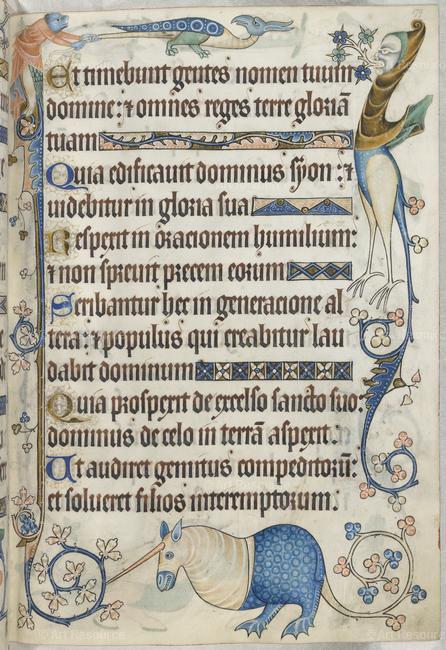 Et timebunt gentes nomen tuum
domine: ⁊ omnes reges terre gloriã
tuam
Quia edificauit dominus syon: ⁊
uidebitur in gloria sua
Respexit in oracionem humilium:
⁊ non spreuit precem eorum
Scribantur hec in generacione al
tera: ⁊ populus qui creabitur lau
dabit dominum
Quia prospexit de excelso sancto suo:
dominus de celo in terrã aspexit.
Ut audiret gemitus compeditorũ:
et solueret filios interemptorum.
© Art Resource